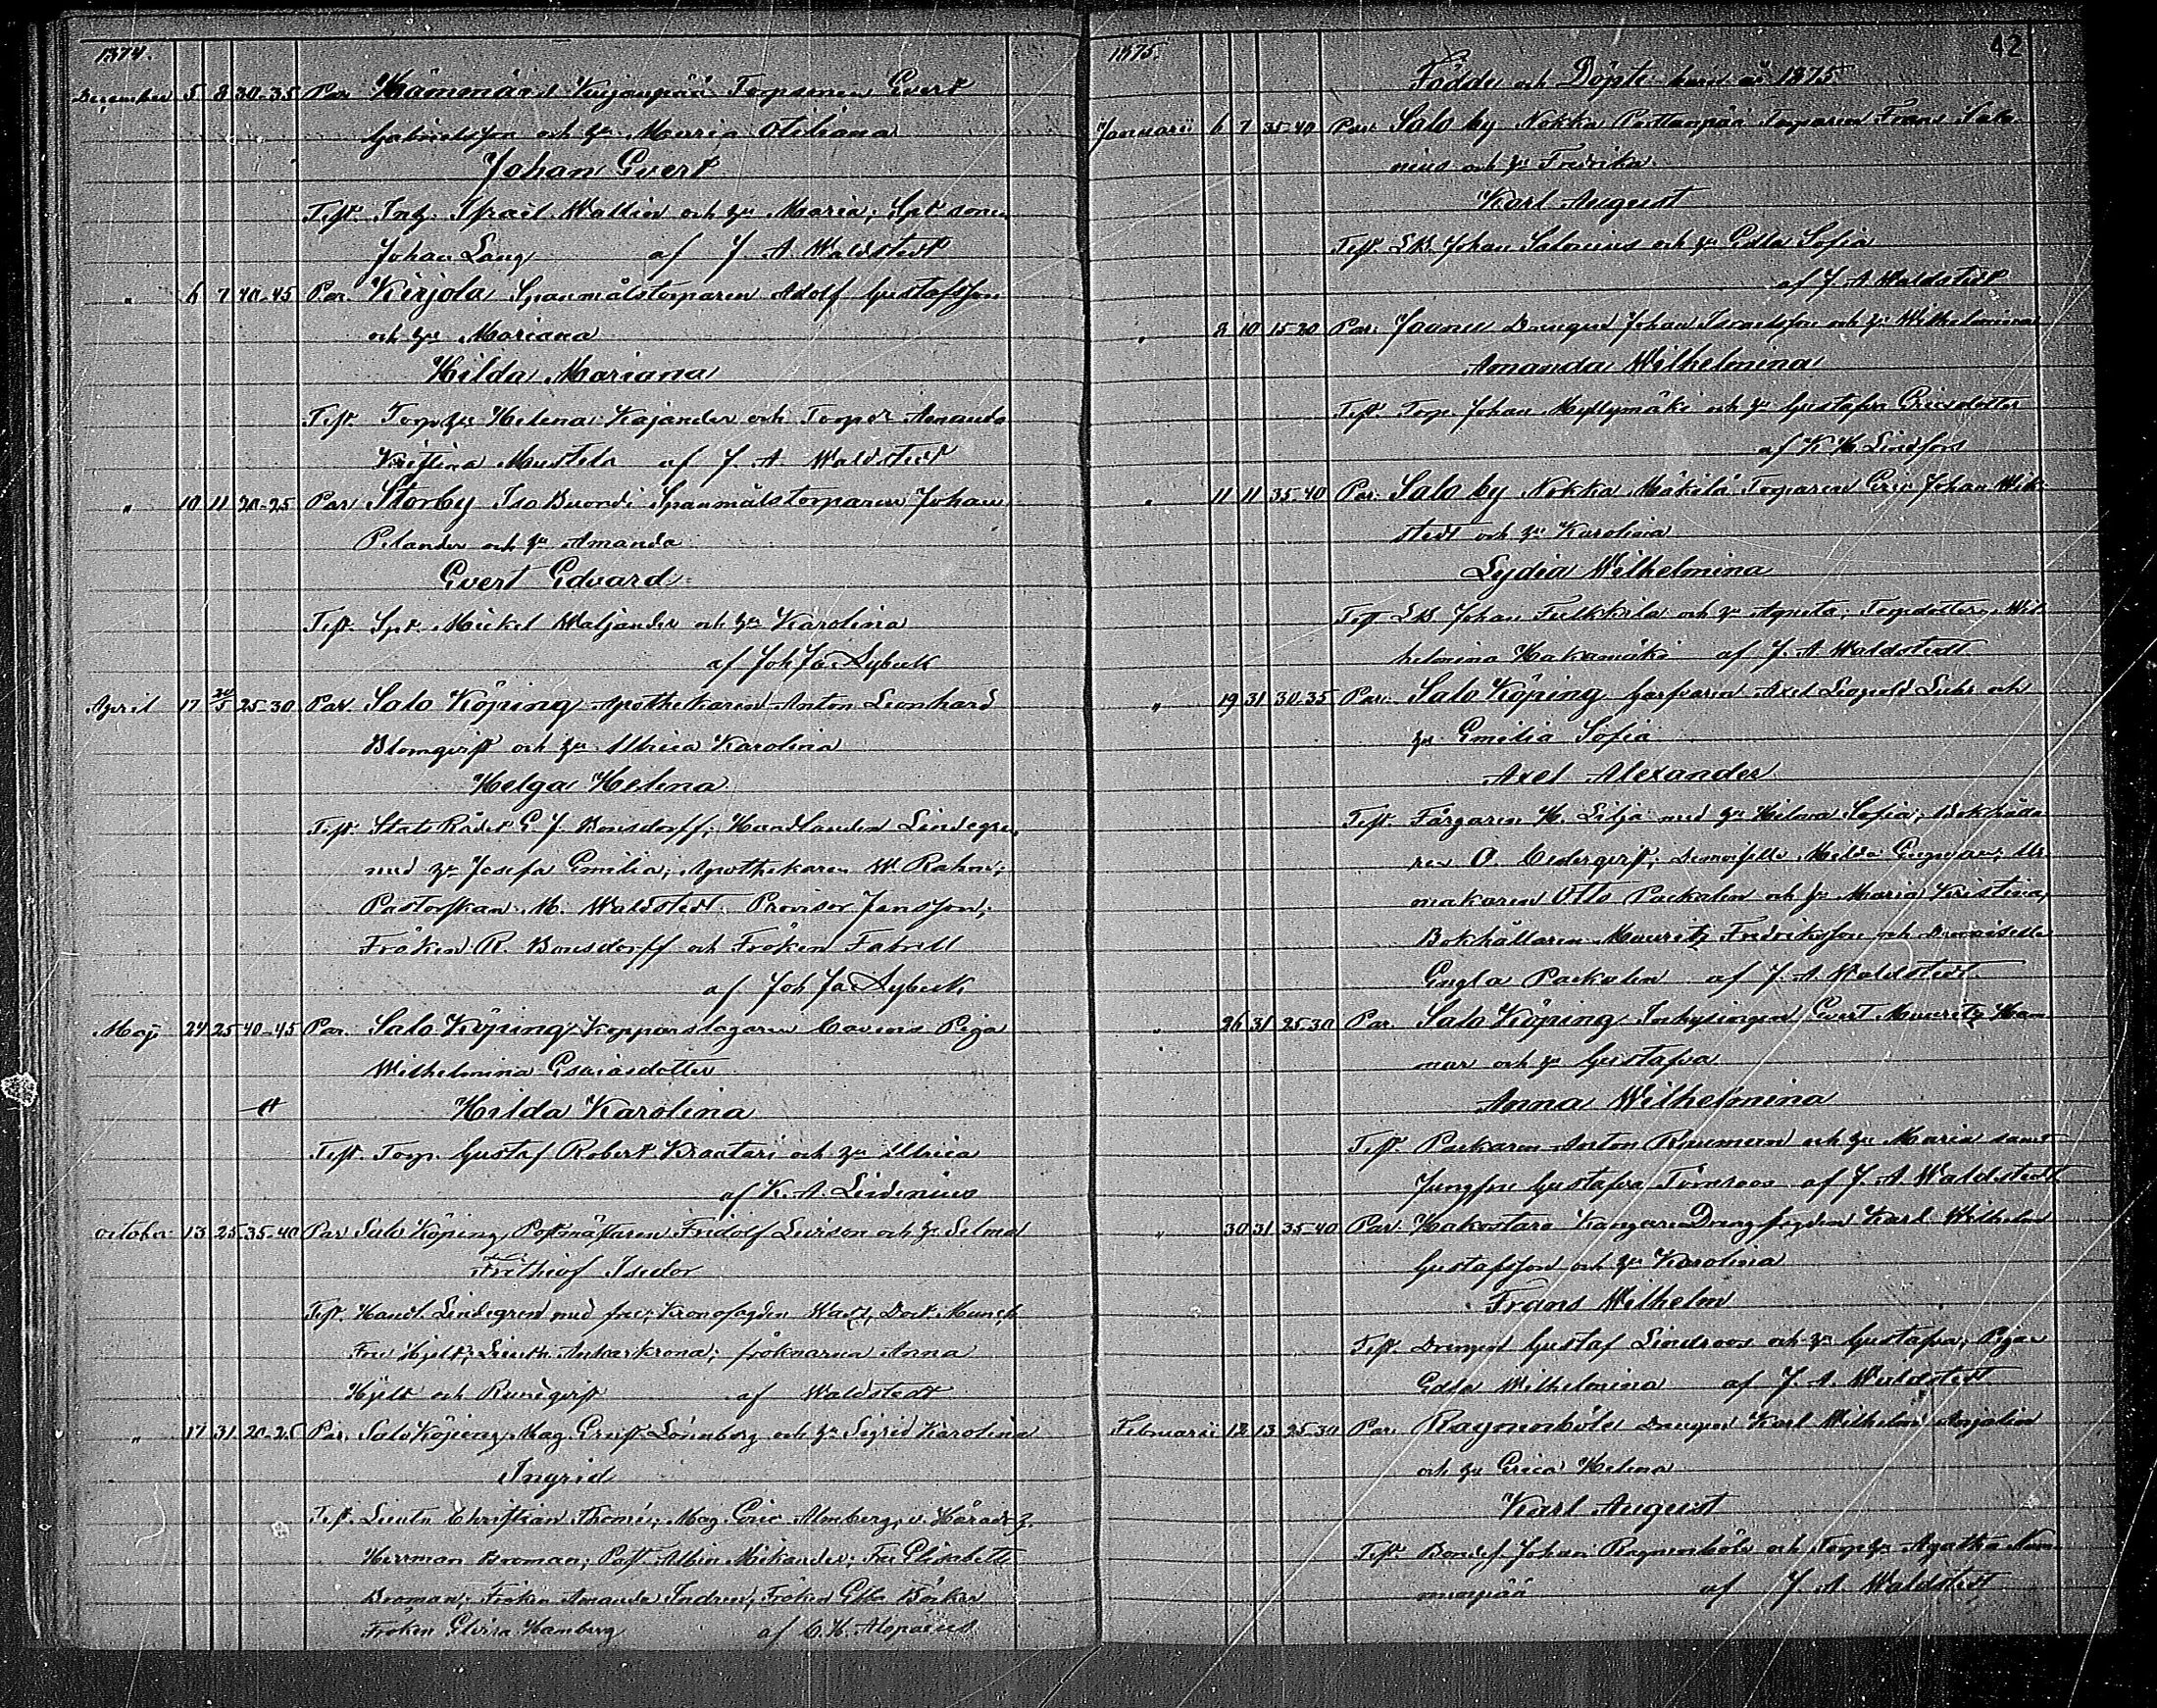 1874.
December 5 8 30-35 Par Hämmäri Torparen Evert
Gabrielsson och hu Maria Otiliana
Johan Evert
Test. Inh. Israel Wallin och hu Maria, Spt sonen
Johan Lang af J. A. Waldstedt
" 6 7 40-45 Par. Kirjola Spanmålstorparen Adolf Gustafsson
och hu Mariana
Hilda Mariana
Test. Torphu Helena Kajander och Torpdr Amanda
Kristina Mustela af J. A. Waldstedt
" 10 11 20-25 Par Storby Iso Spanmålstorparen Johan
Pilander och hu Amanda
Evert Edvard
Test. Spt. Mickel Maljander och hu Karolina
af Joh Ja Sybeck
April 17 24/5 25-30 Par. Salo Köping Apothekaren Anton Leonhard
Blomqvist och hu Ulrica Karolina
Helga Helena
Test Stats Rådet E. J. Bonsdorff; Handlanden Lindegren
med hu Josefa Emilia; Apothekaren W. Rahm;
Pastorskan M. Waldstedt Provisor Jansson;
Fröken R. Bonsdorff och Fröken Fabrell
af Joh Ja Sybeck
Maj 24 25 40-45 Par. Salo Köping Kopparslagaren Piga
Wilhelmina Esaiasdotter
Hilda Karolina
Test. Torp. Gustaf Robert Kraatari och hu Ulrica
af K. A. Lidenius
October 13 25 35-40 Par Salo Köping Postmästaren Fridolf Levison och hu Selma
Frithiof Isidor
Test. Handl. Lindegren med fru; Kronofogden Doct. Munck
Fru Hjelt; Ankarkrona; fröknarna Anna
Hjelt och Runeqvist af Waldstedt
" 17 31 20-25 Par. Salo Köping Mag. Ernst Lönnborg och hu Sigrid Karolina
Ingrid
Test. Lieutn Christian Thomé; Mag. Eric Almberg, v. Häradsh.
Herrman Broman; Past. Albin Mikander; Fru Elisabeth
Broman; Fröken Amanda Indren; Fröken Edla Böcker
Fröken Elvira Hamberg af C. H. Alopaeus
1875. 42
Födde och Döpte åhr 1875
Januarii 6 7 35-40 Par. Salo by Nokka Torparen Frans Salo-
nius och hu Fredrika
Karl August
Test. LB. Johan Salonius och hu Edla Sofia
af J. A. Waldstedt
" 8 10 15-20 Par. Drengen Johan Israelsson och hu Wilhelmina
Amanda Wilhelmina
Test. Torp. Johan Myllymäki och hu Gustafva Ericsdotter
af K H. Lindfors
" 11 11 35-40 Par. Salo by Nokka Mäkilä Torparen Eric Johan Wik-
stedt och hu Karolina
Lydia Wilhelmina
Test LB Johan Fulkkila och hu Agneta; Torpdottern Wil-
helmina Hakamäki af J. A. Waldstedt
" 19 31 30-35 Par. Salo Köping Garfvaren Axel Leopold Luhr och
hu Emilia Sofia
Axel Alexander
Test. Färgaren H. Lilja med hu Hilma Sofia; Bokhålla-
ren O. Cederqvist; Demoiselle Milda Ur-
makaren Otto Packalen och hu Maria Kristina;
Bokhållaren Mauritz Fredriksson och Demoiselle
Engla Packalen af J. A. Waldstedt
" 26 31 25-30 Par Salo Köping Inhysingen Evert Mauritz Ham-
mar och hu Gustafva
Anna Wilhelmina
Test. Packaren Anton Rauman och hu Maria samt
Jungfru Gustafva Törnroos af J. A. Waldstedt
" 30 31 35-40 Par. Hakostaro Drengfogden Karl Wilhelm
Gustafsson och hu Karolina
Frans Wilhelm
Test. Drengen Gustaf Lindroos och hu Gustafva, Piga
Edla Wilhelmina af J. A. Waldstedt
Februarii 12 13 25-30 Par. Raymonböle Drengen Karl Wilhelm Anjalin
och hu Erica Helena
Karl August
Test. Bondes. Johan Raymonböle och Torphu Agatha
af J. A. Waldstedt